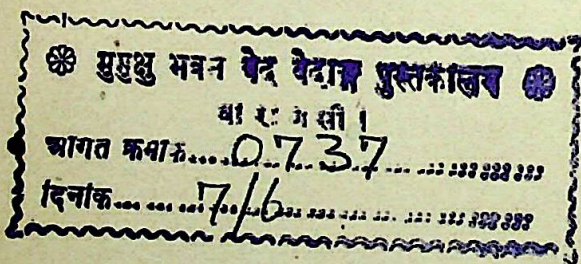 मुमुक्षु भवन वेद वेदाङ्ग पुस्तकालय
वा रा ण सी ।
आगत क्रमांक.... 0737
दिनांक..... 7/6